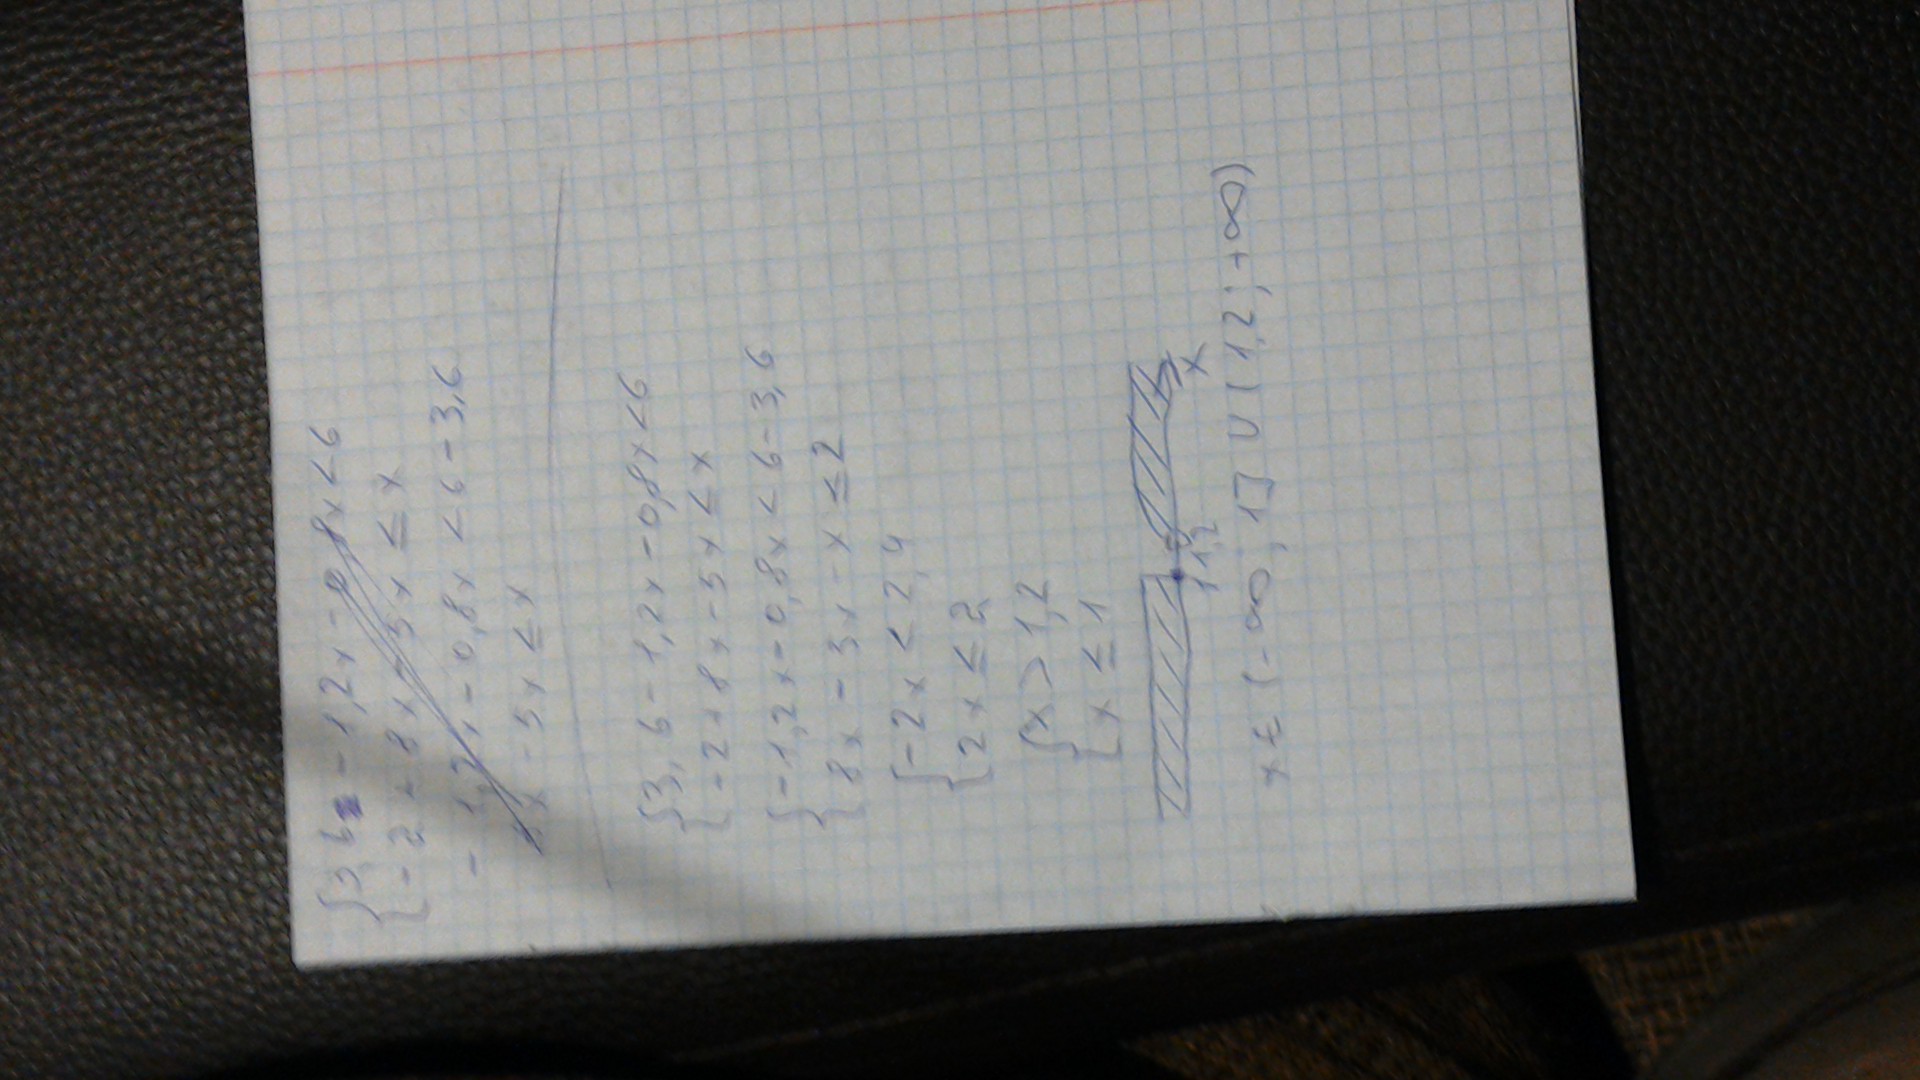 {3,6 - 1,2x - 0,8x < 6
{-2 + 8x - 5x ≤ x
- 1,2x - 0,8x < 6 - 3,6
- 5x ≤ x
{3,6 - 1,2x - 0,8x < 6
{-2+8x-5x ≤ x
{-1,2x - 0,8x < 6-3,6
{8x - 5x - x ≤ 2
{-2x < 2,4
{2x ≤ 2
{x > 1,2
{x ≤ 1
1 1,2 x
x ∈ (-∞, 1] U (1,2; +∞)